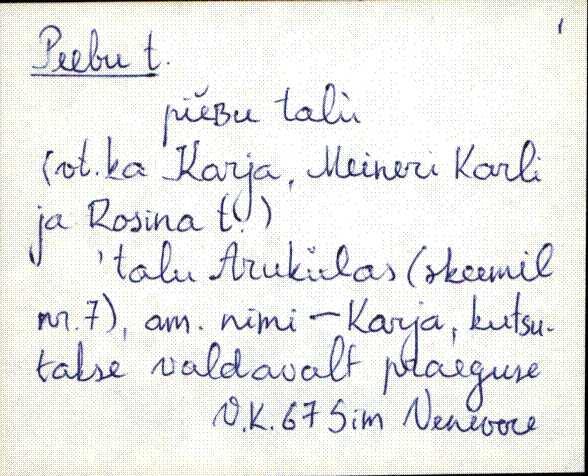 Peebu t.
piěʙu talù
(vt. ka Karja, Meineri Karli
ja Rosina t.)
'talu Aruküлas (skeemil
nr. 7), am. nimi – Karja, kutsu-
takse valdavalt praeguse
V.K. 67 Sim Venevere